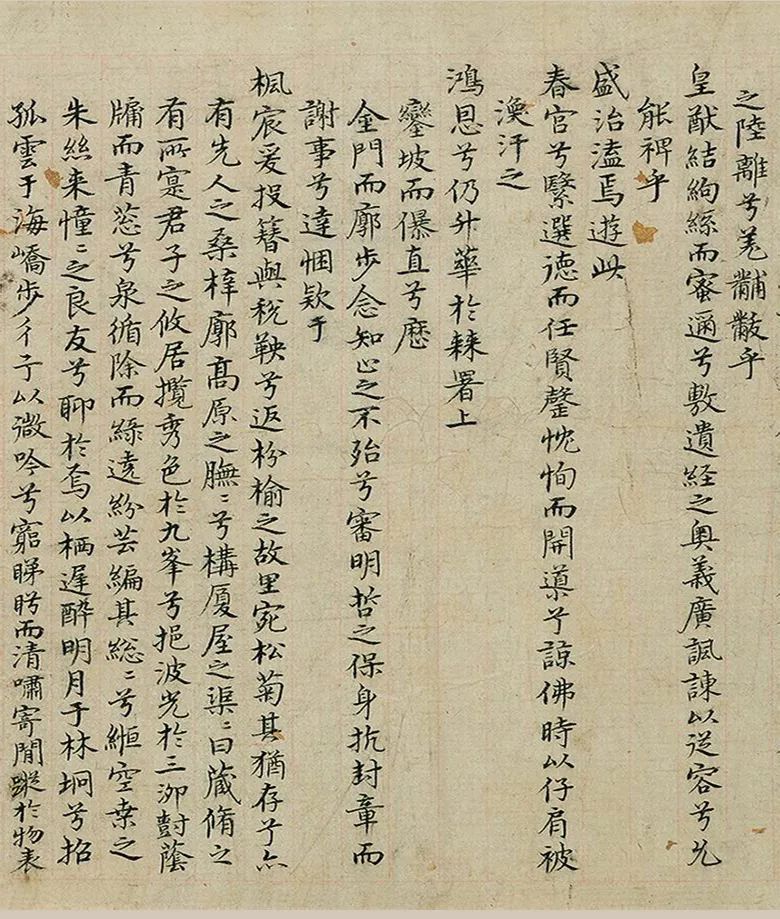 之陸離兮羌黼黻乎
皇猷結絇絲而蜜邇兮敷遺経之奥義廣諷諫以従容兮允
能裨乎
盛治溘焉遊此
春官兮繄選德而任賢罄忱恂而開導兮諒佛時以仔肩被
渙汗之
鴻恩兮仍升華於棘署上
鑾坡而儤直兮歷
金門而廓步念知止之不殆兮審明哲之保身抗封章而
謝事兮達悃欵于
楓宸爰投簪與稅鞅兮返枌榆之故里宛松菊其猶存兮亦
有先人之桑梓廓高原之膴〻兮構廈屋之渠〻曰藏脩之
有所寔君子之攸居攬秀色於九峯兮挹波光於三泖對蔭
牖而青葱兮泉循除而緑遶紛芸編其總〻兮緪空桒之
朱絲来憧〻之良友兮聊於焉以栖遲酔明月于林坰兮招
孤雲于海嶠步彳亍以微吟兮窮睇眄而清嘯寄閒蹤於物表